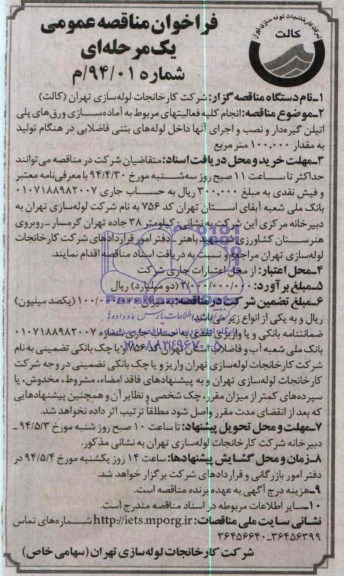 شرکت کارخانجات لوله سازی تهران
کالت
فراخوان مناقصه عمومی
یک مرحله‌ای
شماره ۹۴/۰۱/م
۱ـ نام دستگاه مناقصه گزار: شرکت کارخانجات لوله‌سازی تهران (کالت)
۲ـ موضوع مناقصه: انجام کلیه فعالیتهای مربوط به آماده‌سازی ورق‌های پلی
اتیلن گیره‌دار و نصب و اجرای آنها داخل لوله‌های بتنی فاضلابی در هنگام تولید
به مقدار ۱۰۰,۰۰۰ متر مربع
۳ـ مهلت خرید و محل دریافت اسناد: متقاضیان شرکت در مناقصه می‌توانند
حداکثر تا ساعت ۱۱ صبح روز سه‌شنبه مورخ ۹۴/۴/۳۰ با معرفی‌نامه معتبر
و فیش نقدی به مبلغ ۳۰۰,۰۰۰ ریال به حساب جاری ۰۱۰۷۱۸۸۹۸۲۰۰۷
بانک ملی شعبه آبفای استان تهران کد ۷۵۶ به نام شرکت لوله‌سازی تهران به
دبیرخانه مرکزی این شرکت به نشانی: کیلومتر ۳۸ جاده تهران گرمسار ـ روبروی
هنرستان کشاورزی شهید باهنر ـ دفتر امور قراردادهای شرکت کارخانجات
لوله‌سازی تهران مراجعه و نسبت به دریافت اسناد مناقصه اقدام نمایند.
۴ـ محل اعتبار: از محل اعتبارات جاری شرکت
۵ـ مبلغ برآورد: (دو میلیارد) ریال
۶ـ مبلغ تضمین شرکت در مناقصه: (یکصد میلیون)
ریال و به یکی از انواع زیر می‌باشد:
ضمانتنامه بانکی و یا واریز نقدی به حساب جاری شماره ۰۱۰۷۱۸۸۹۸۲۰۰۷
بانک ملی شعبه آب و فاضلاب استان تهران کد ۷۵۶ و یا چک بانکی تضمینی به نام
شرکت کارخانجات لوله‌سازی تهران واریز و یا چک بانکی تضمینی در وجه شرکت
کارخانجات لوله‌سازی تهران و به پیشنهادهای فاقد امضاء، مشروط، مخدوش، یا
سپرده‌های کمتر از میزان مقرر، چک شخصی و نظایر آن و همچنین پیشنهادهایی
که بعد از انقضای مدت مقرر واصل شود مطلقاً ترتیب اثر داده نخواهد شد.
۷ـ مهلت و محل تحویل پیشنهاد: تا ساعت ۱۰ صبح روز شنبه مورخ ۹۴/۵/۳ ـ
دبیرخانه شرکت کارخانجات لوله‌سازی تهران به نشانی مذکور.
۸ـ زمان و محل گشایش پیشنهادها: ساعت ۱۴ روز یکشنبه مورخ ۹۴/۵/۴ در
دفتر امور بازرگانی و قراردادهای شرکت برگزار خواهد شد.
۹ـ هزینه درج آگهی به عهده برنده مناقصه است.
۱۰ـ سایر اطلاعات مربوطه در اسناد مناقصه مندرج است.
نشانی سایت ملی مناقصات: http://iets.mporg.ir شماره‌های تماس
۳۶۴۵۶۳۹۹ـ۳۶۴۵۶۶۴۰
شرکت کارخانجات لوله‌سازی تهران (سهامی خاص)